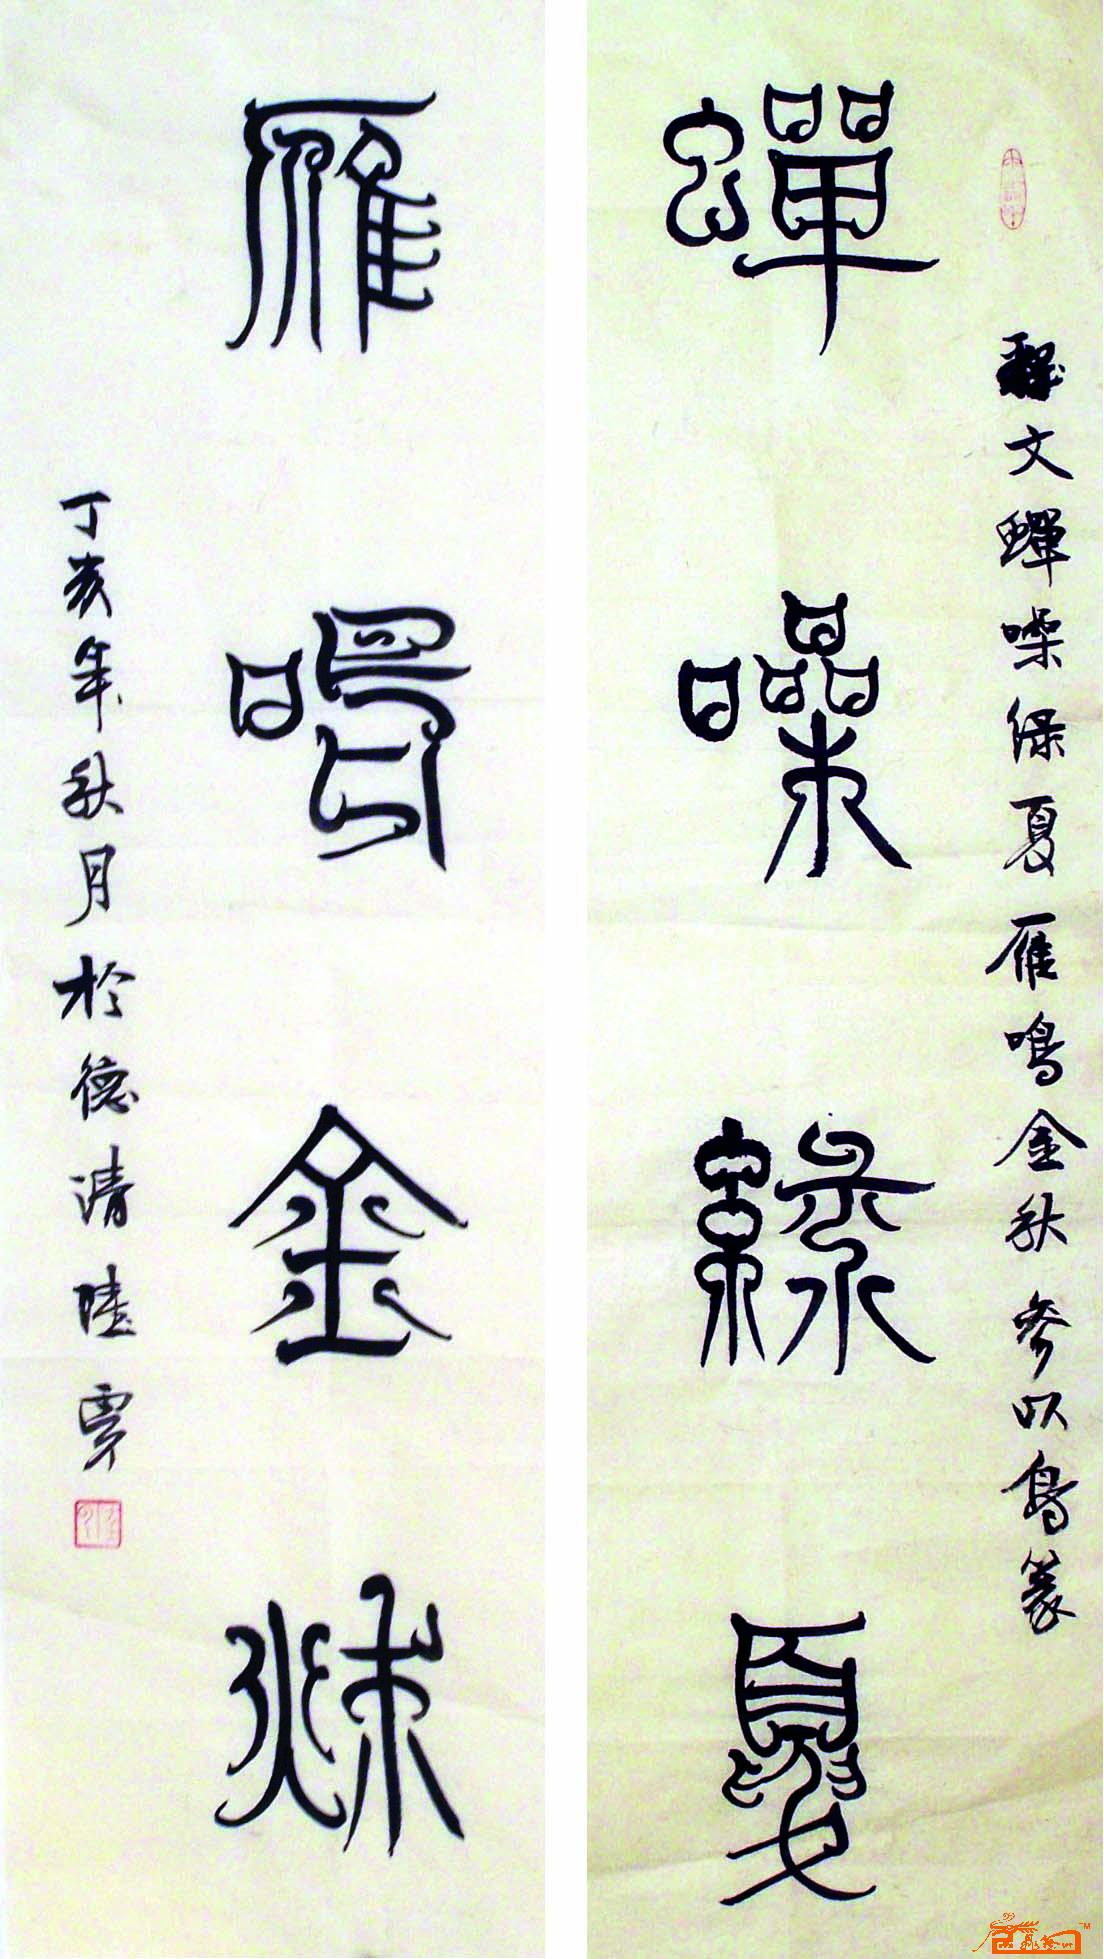 蟬噪綠夏
文蟬噪綠夏雁鳴金秋參以鳥篆
雁鳴金秋
丁亥年秋月於德清陸賈